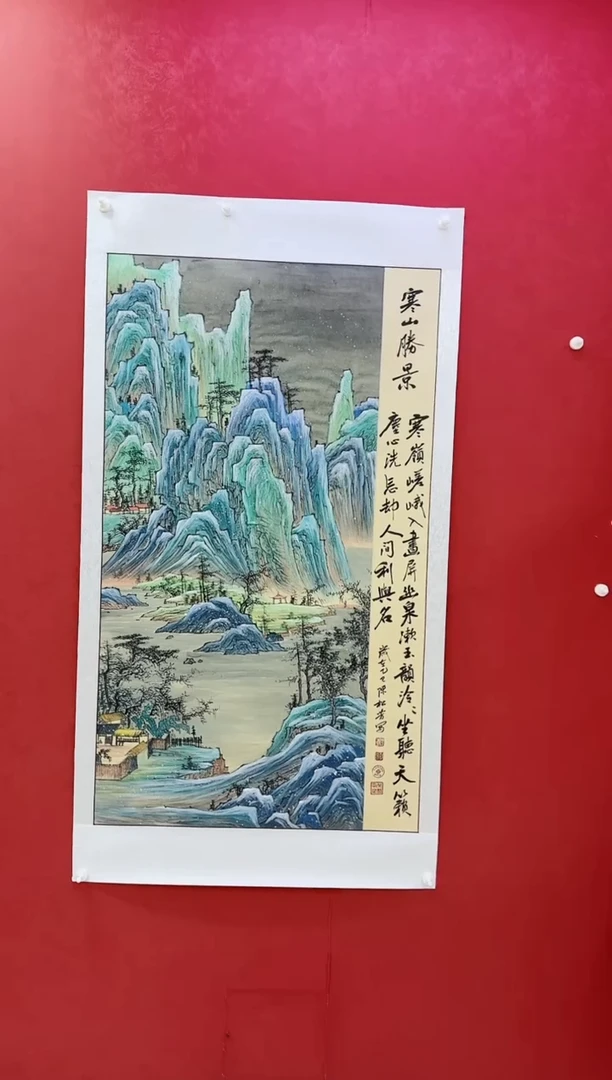 寒山勝景
寒嶺嵯峨入畫屏幽泉漱玉韻泠〻坐聽天籟
塵心洗忘却人间利與名
陳松
写